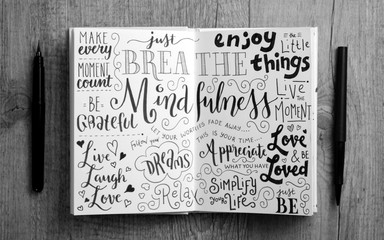 MAKE
every
MOMENT
count
just
BREATHE
enjoy
the Little
things
Mindfulness
LIVE
THE
MOMENT
BE
Grateful
Follow your DREAMS
LET YOUR WORRIES FADE AWAY...
THIS IS YOUR TIME...
Appreciate
WHAT YOU HAVE
Love
& BE
Loved
Live
Laugh
Love
Relax
Simplify
YOUR
Life
just
BE